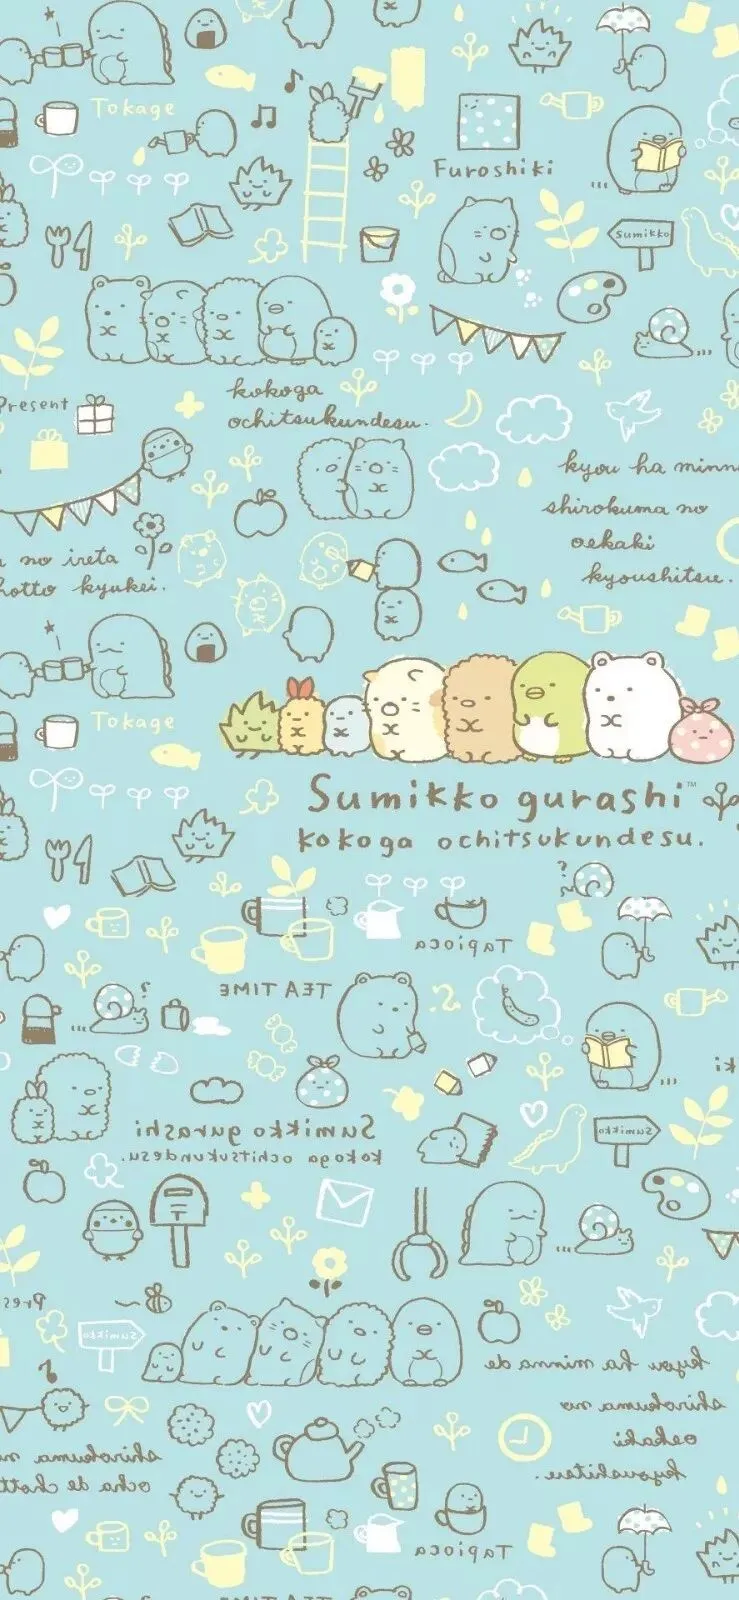 Tokage
Furoshiki
Sumikko
Present
kokoga
ochitsukundesu.
kyou ha minn
shirokuma no
oekaki
kyoushitsu.
no ireta
hotto kyukei.
Tokage
Sumikko gurashi™
kokoga ochitsukundesu.
Tapioca
TEA TIME
Sumikko gurashi
kokoga ochitsukundesu.
Sumikko
Pres
Sumikko
kyou ha minna de
shirokuma no
oekaki
kyoushitsu.
shirokuma no
ocha de chott
Tapioca
TEA TIME